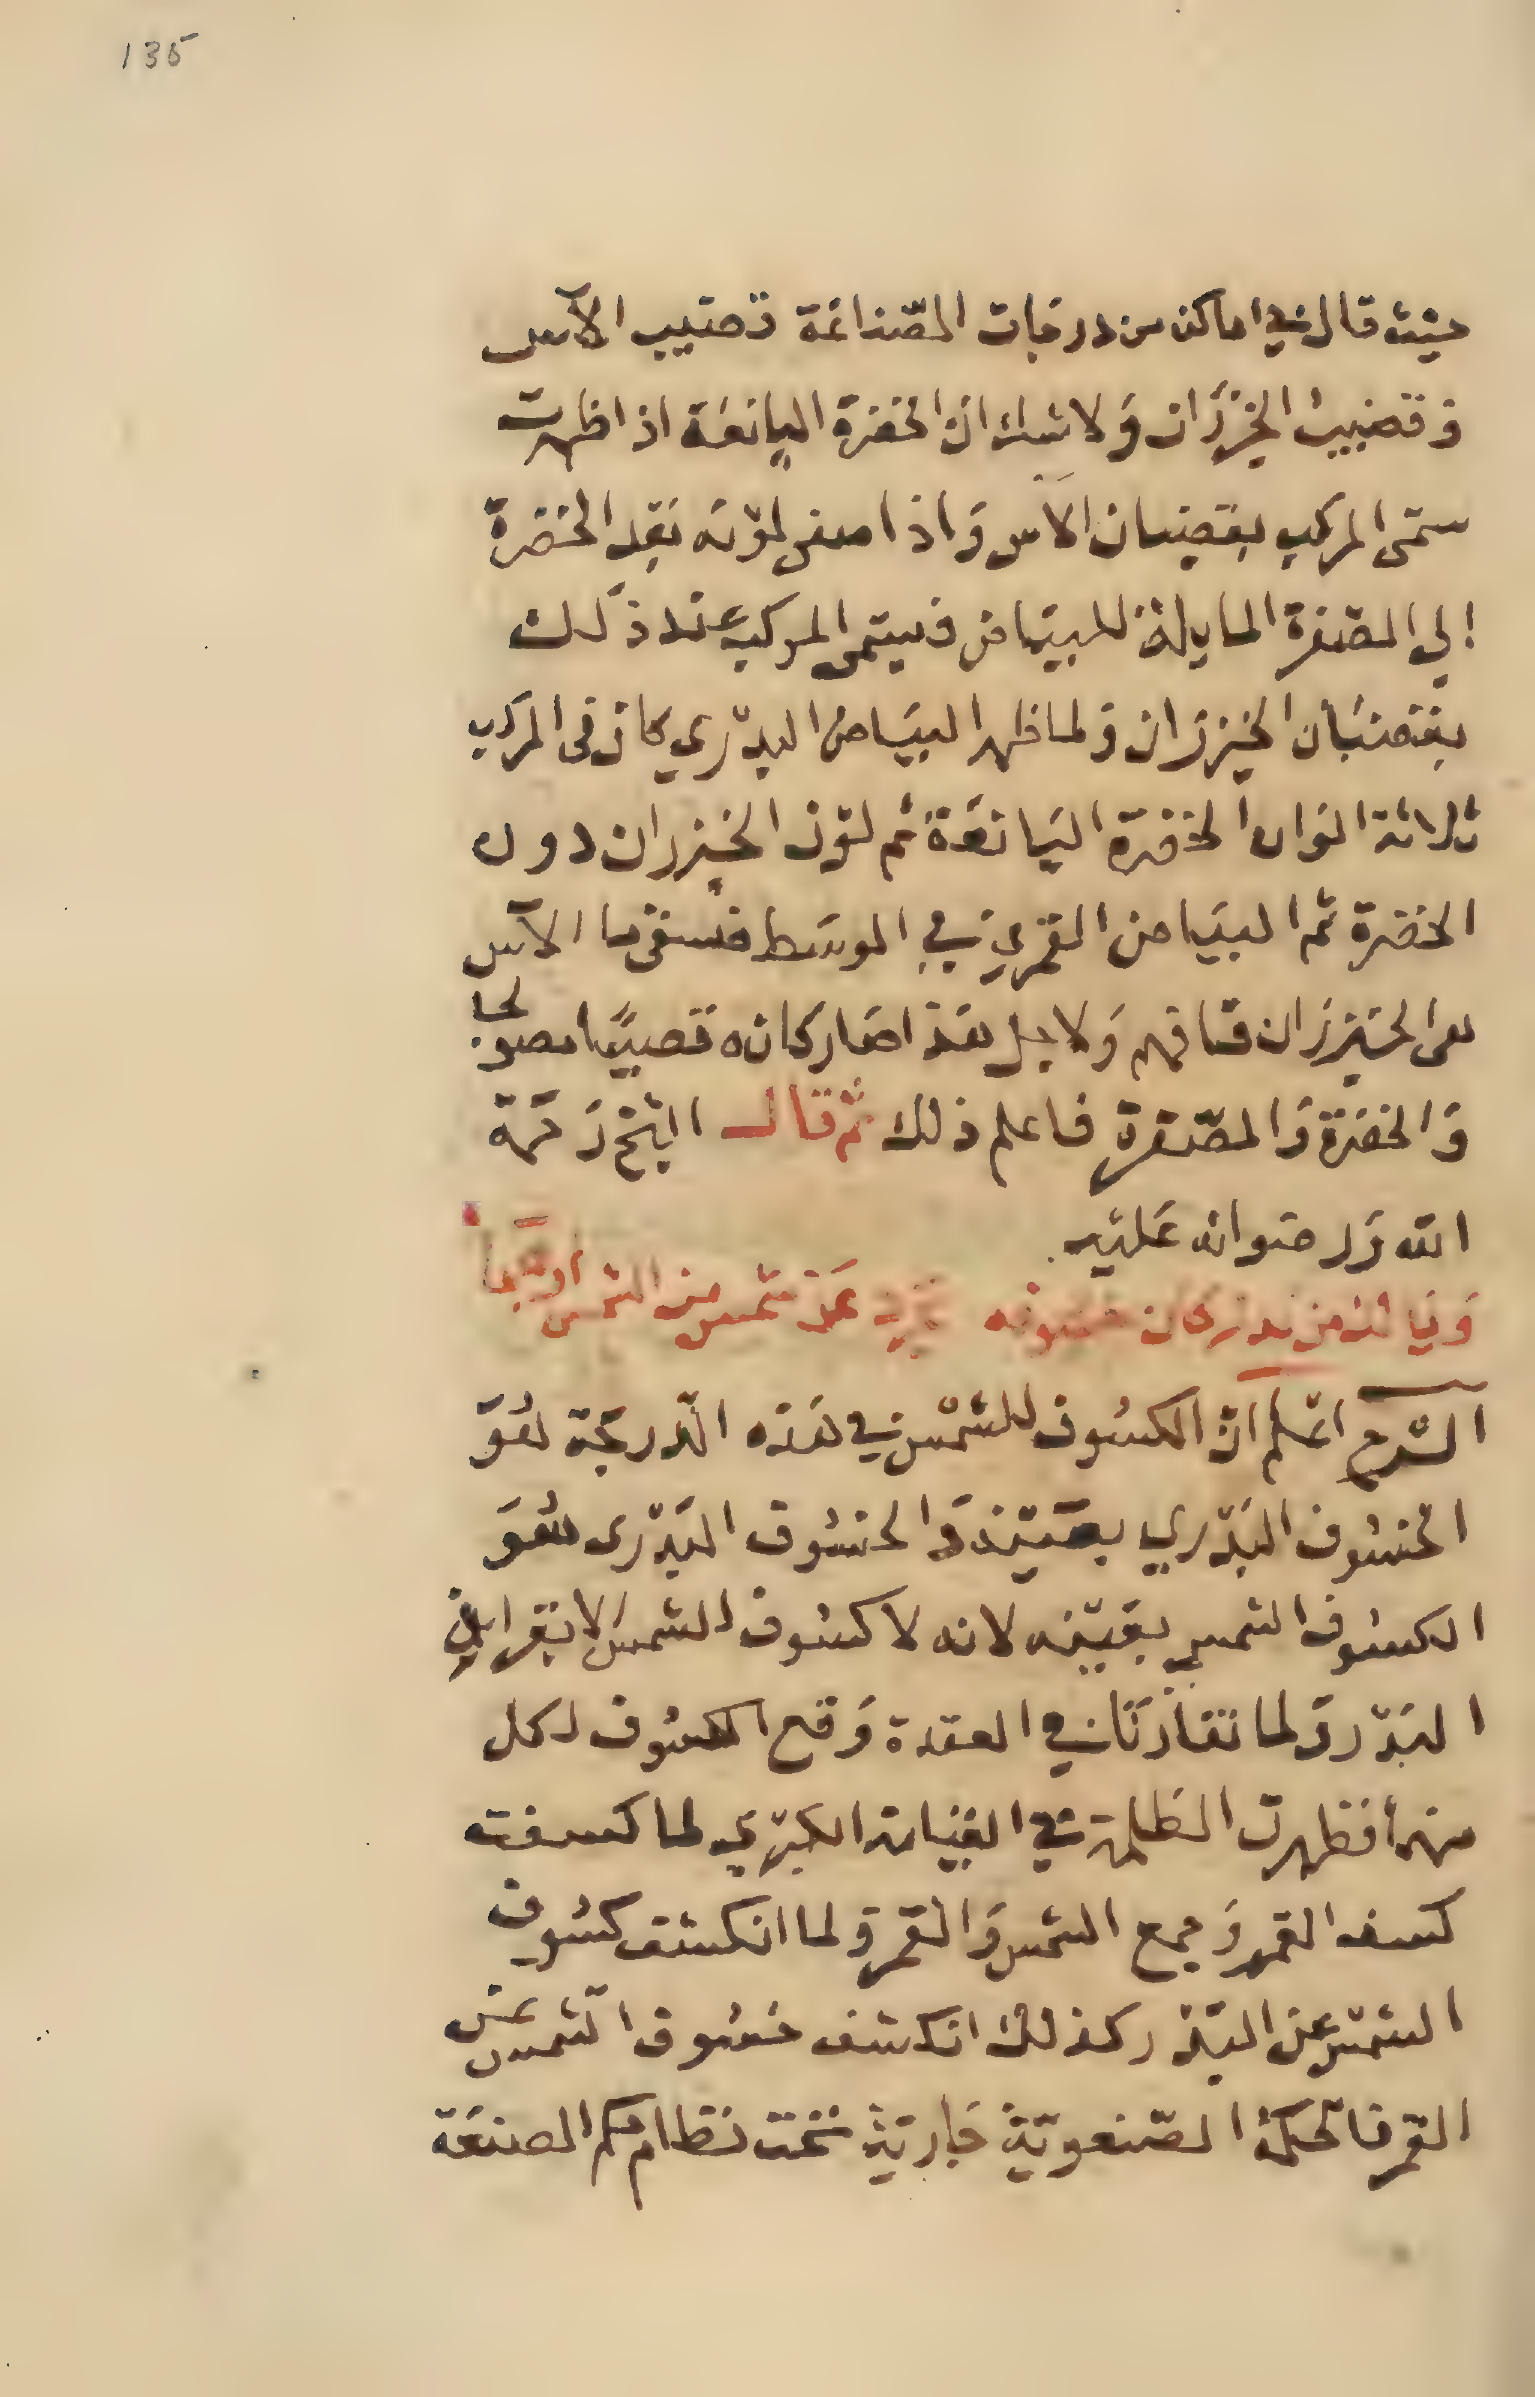 135
حيث قال في اماكن من درجات الصّناعة قضيب الآس
وقضيب الخيزران ولا شك انّ الخضرة اليانعة اذا ظهرت
سمّى المركب بقضبان الآس واذا اصفى لونه بعد الخضرة
الى الصّفرة المايلة للبياض فيسمّى المركب عند ذلك
بقضبان الخيزران ولما ظهر البياض البدري كان في المركب
ثلاثة الوان الخضرة اليانعة ثم لون الخيزران دون
الخضرة ثم البياض القمري في الوسط الآس
الخيزران فافهم ولاجل هذا صار كانه قضيبًا
والخضرة والصّفرة فاعلم ذلك ثم قال الشيخ رحمة
الله ورضوانه عليه
ويا لك من بدر كان خسوفه عن شمس من الشمس
الشرح اعلم انّ الكسوف للشمس في هذه الدّرجة هو
الخسوف البدري بعينه والخسوف البدرى هو
الكسوف الشمسي بعينه لانه لا كسوف للشمس الا
البدر ولما تقارنا في العقدة وقع الكسوف لكل
منهما فظهرت الظلمة في القيامة الكبرى لما كسفت
كسف القمر وجمع الشمس والقمر ولما انكشف كسوف
الشمس عن البدر كذلك انكشف خسوف الشمس عن
القمر فالحكمة الصّنعويّة جارية تحت نظام حكم الصنعة